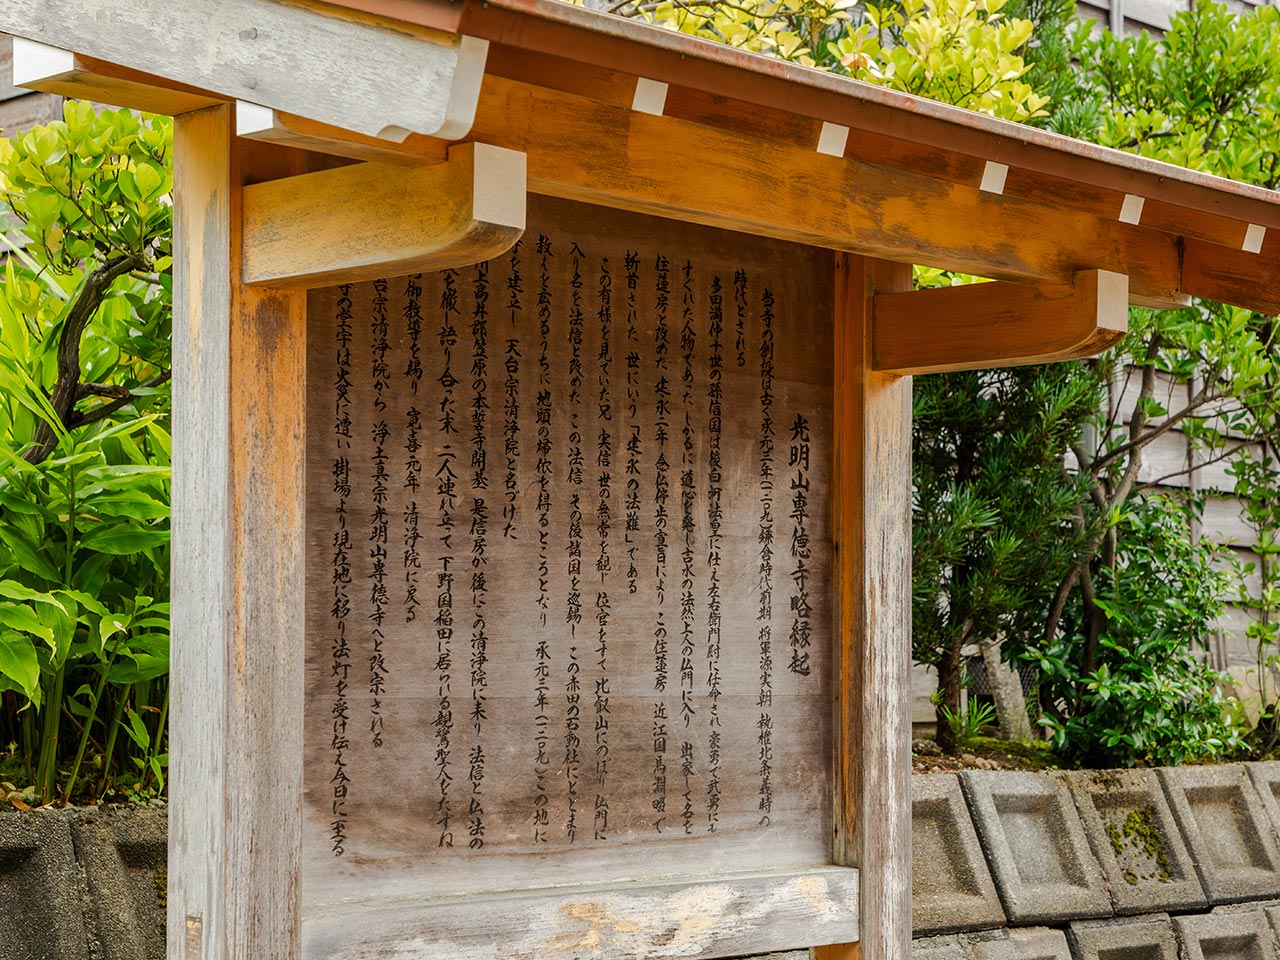 光明山専徳寺略縁起
当寺の創縁は古く承元三年(一二〇九)鎌倉時代前期 将軍源実朝 執権北条義時の
時代とされる
多田満仲十世の孫信国は後白河法皇に仕え左右衛門尉に任命され豪勇で武勇にも
すぐれた人物であった しかるに道心を発し吉水の法然上人の仏門に入り 出家して名を
住蓮房と改めた 建永二年 念仏停止の宣旨により この住蓮房 近江国馬淵畷で
斬首された 世にいう「建永の法難」である
この有様を見ていた兄 実信 世の無常を観し 位官をすて 比叡山にのぼり 仏門に
入り名を法信と改めた この法信 その後諸国を巡錫し この赤田の石動社にとどまり
教えを広めるうちに 地頭の帰依を得るところとなり 承元三年(一二〇九)この地に
を建立し 天台宗清浄院と名づけた
上高井郡笠原の本誓寺開基 是信房が後にこの清浄院に来り 法信と仏法の
を徹し語り合った末 二人連れ立って 下野国稲田に居られる親鸞聖人をたずね
御教導を賜り 寛喜元年 清浄院に戻る
台宗清浄院から 浄土真宗光明山専徳寺へと改宗される
寺の堂宇は火災に遭い 掛場より現在地に移り法灯を受け伝え今日に至る